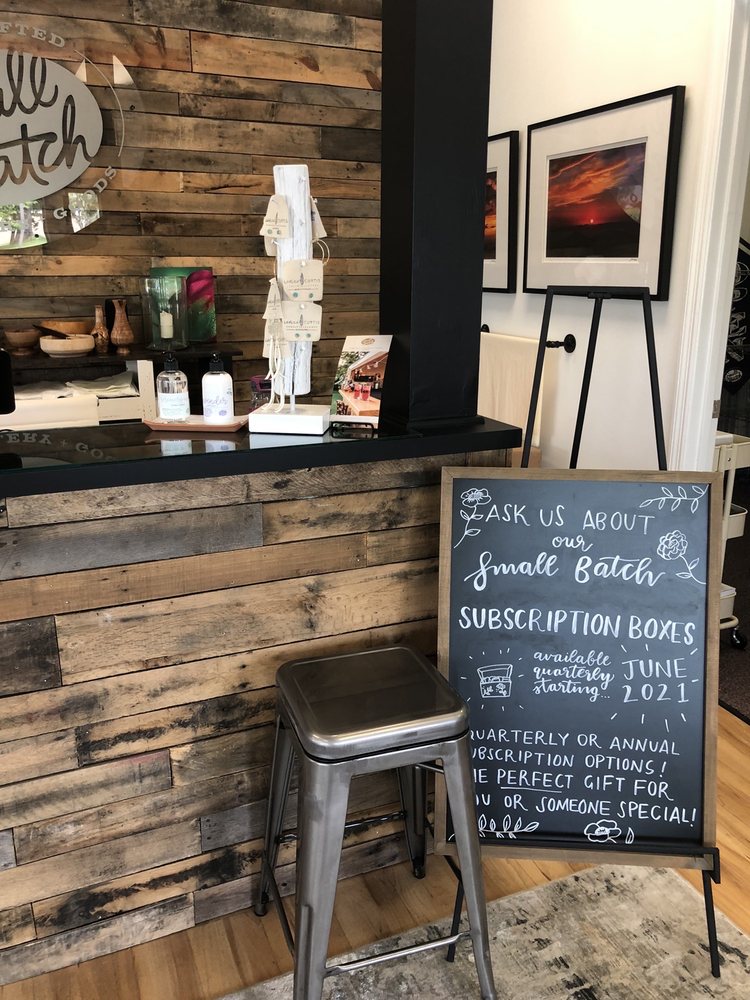 FTED
all
atch
GOODS
LAUREN CURTIS
LAUREN CURTIS
TERA + GO
ASK US ABOUT
our
Small Batch
SUBSCRIPTION BOXES
available
quarterly
starting...
JUNE
2021
QUARTERLY OR ANNUAL
UBSCRIPTION OPTIONS!
HE PERFECT GIFT FOR
OU OR SOMEONE SPECIAL!